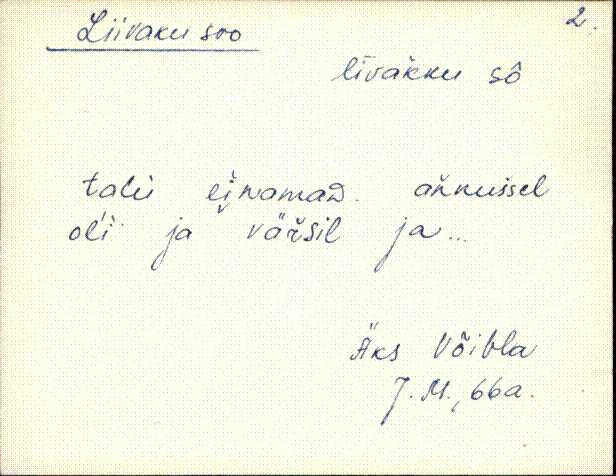 2.
Liivaku soo
līvàkku sô
talu ei̯namaD. ànnussel
oli ja vär̀sil ja...
Äks Võibla
J. M., 66a.